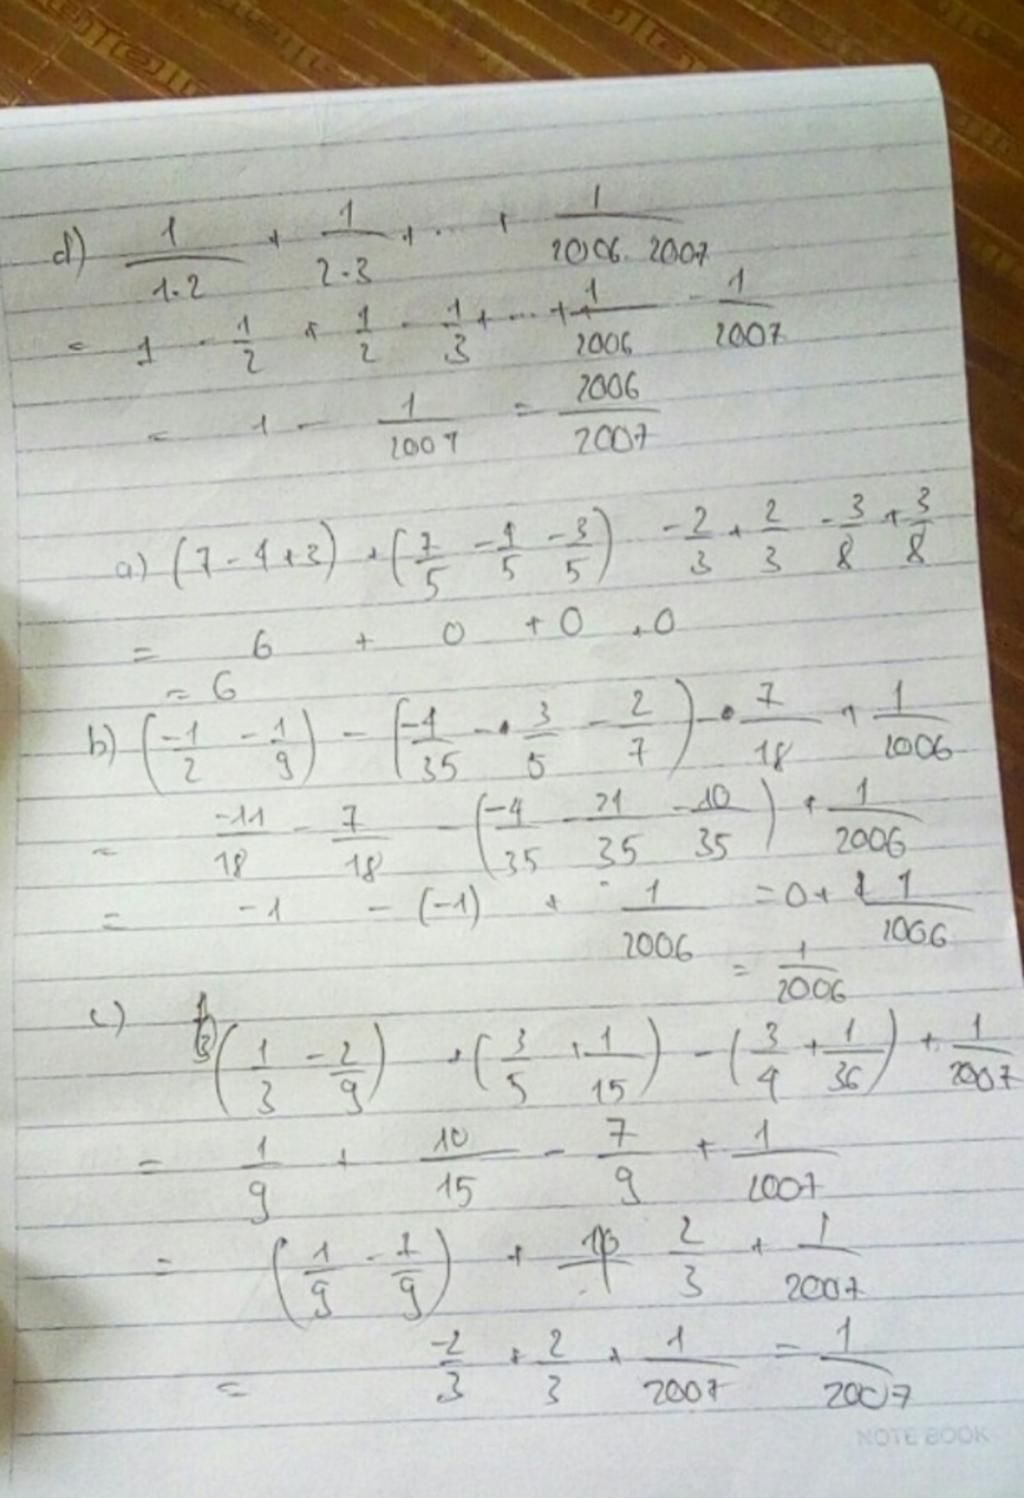 d) 1/1.2 + 1/2.3 + ... + 1/2006.2007
= 1 - 1/2 + 1/2 - 1/3 + ... + 1/2006 - 1/2007
= 1 - 1/2007 = 2006/2007
a) (7-4+3) + (7/5 -4/5 -3/5) -2/3 + 2/3 -3/8 +3/8
= 6 + 0 + 0 + 0
= 6
b) (-1/2 - 1/9) - (-4/35 - 3/5 - 2/7) - 7/18 + 1/2006
= -11/18 - 7/18 - (-4/35 - 21/35 - 10/35) + 1/2006
= -1 - (-1) + 1/2006 = 0 + 1/2006
= 1/2006
c) (1/3 - 2/9) + (3/5 + 1/15) - (3/4 + 1/36) + 1/2007
= 1/9 + 10/15 - 7/9 + 1/2007
= (1/9 - 7/9) + 2/3 + 1/2007
= -2/3 + 2/3 + 1/2007 = 1/2007
NOTE BOOK